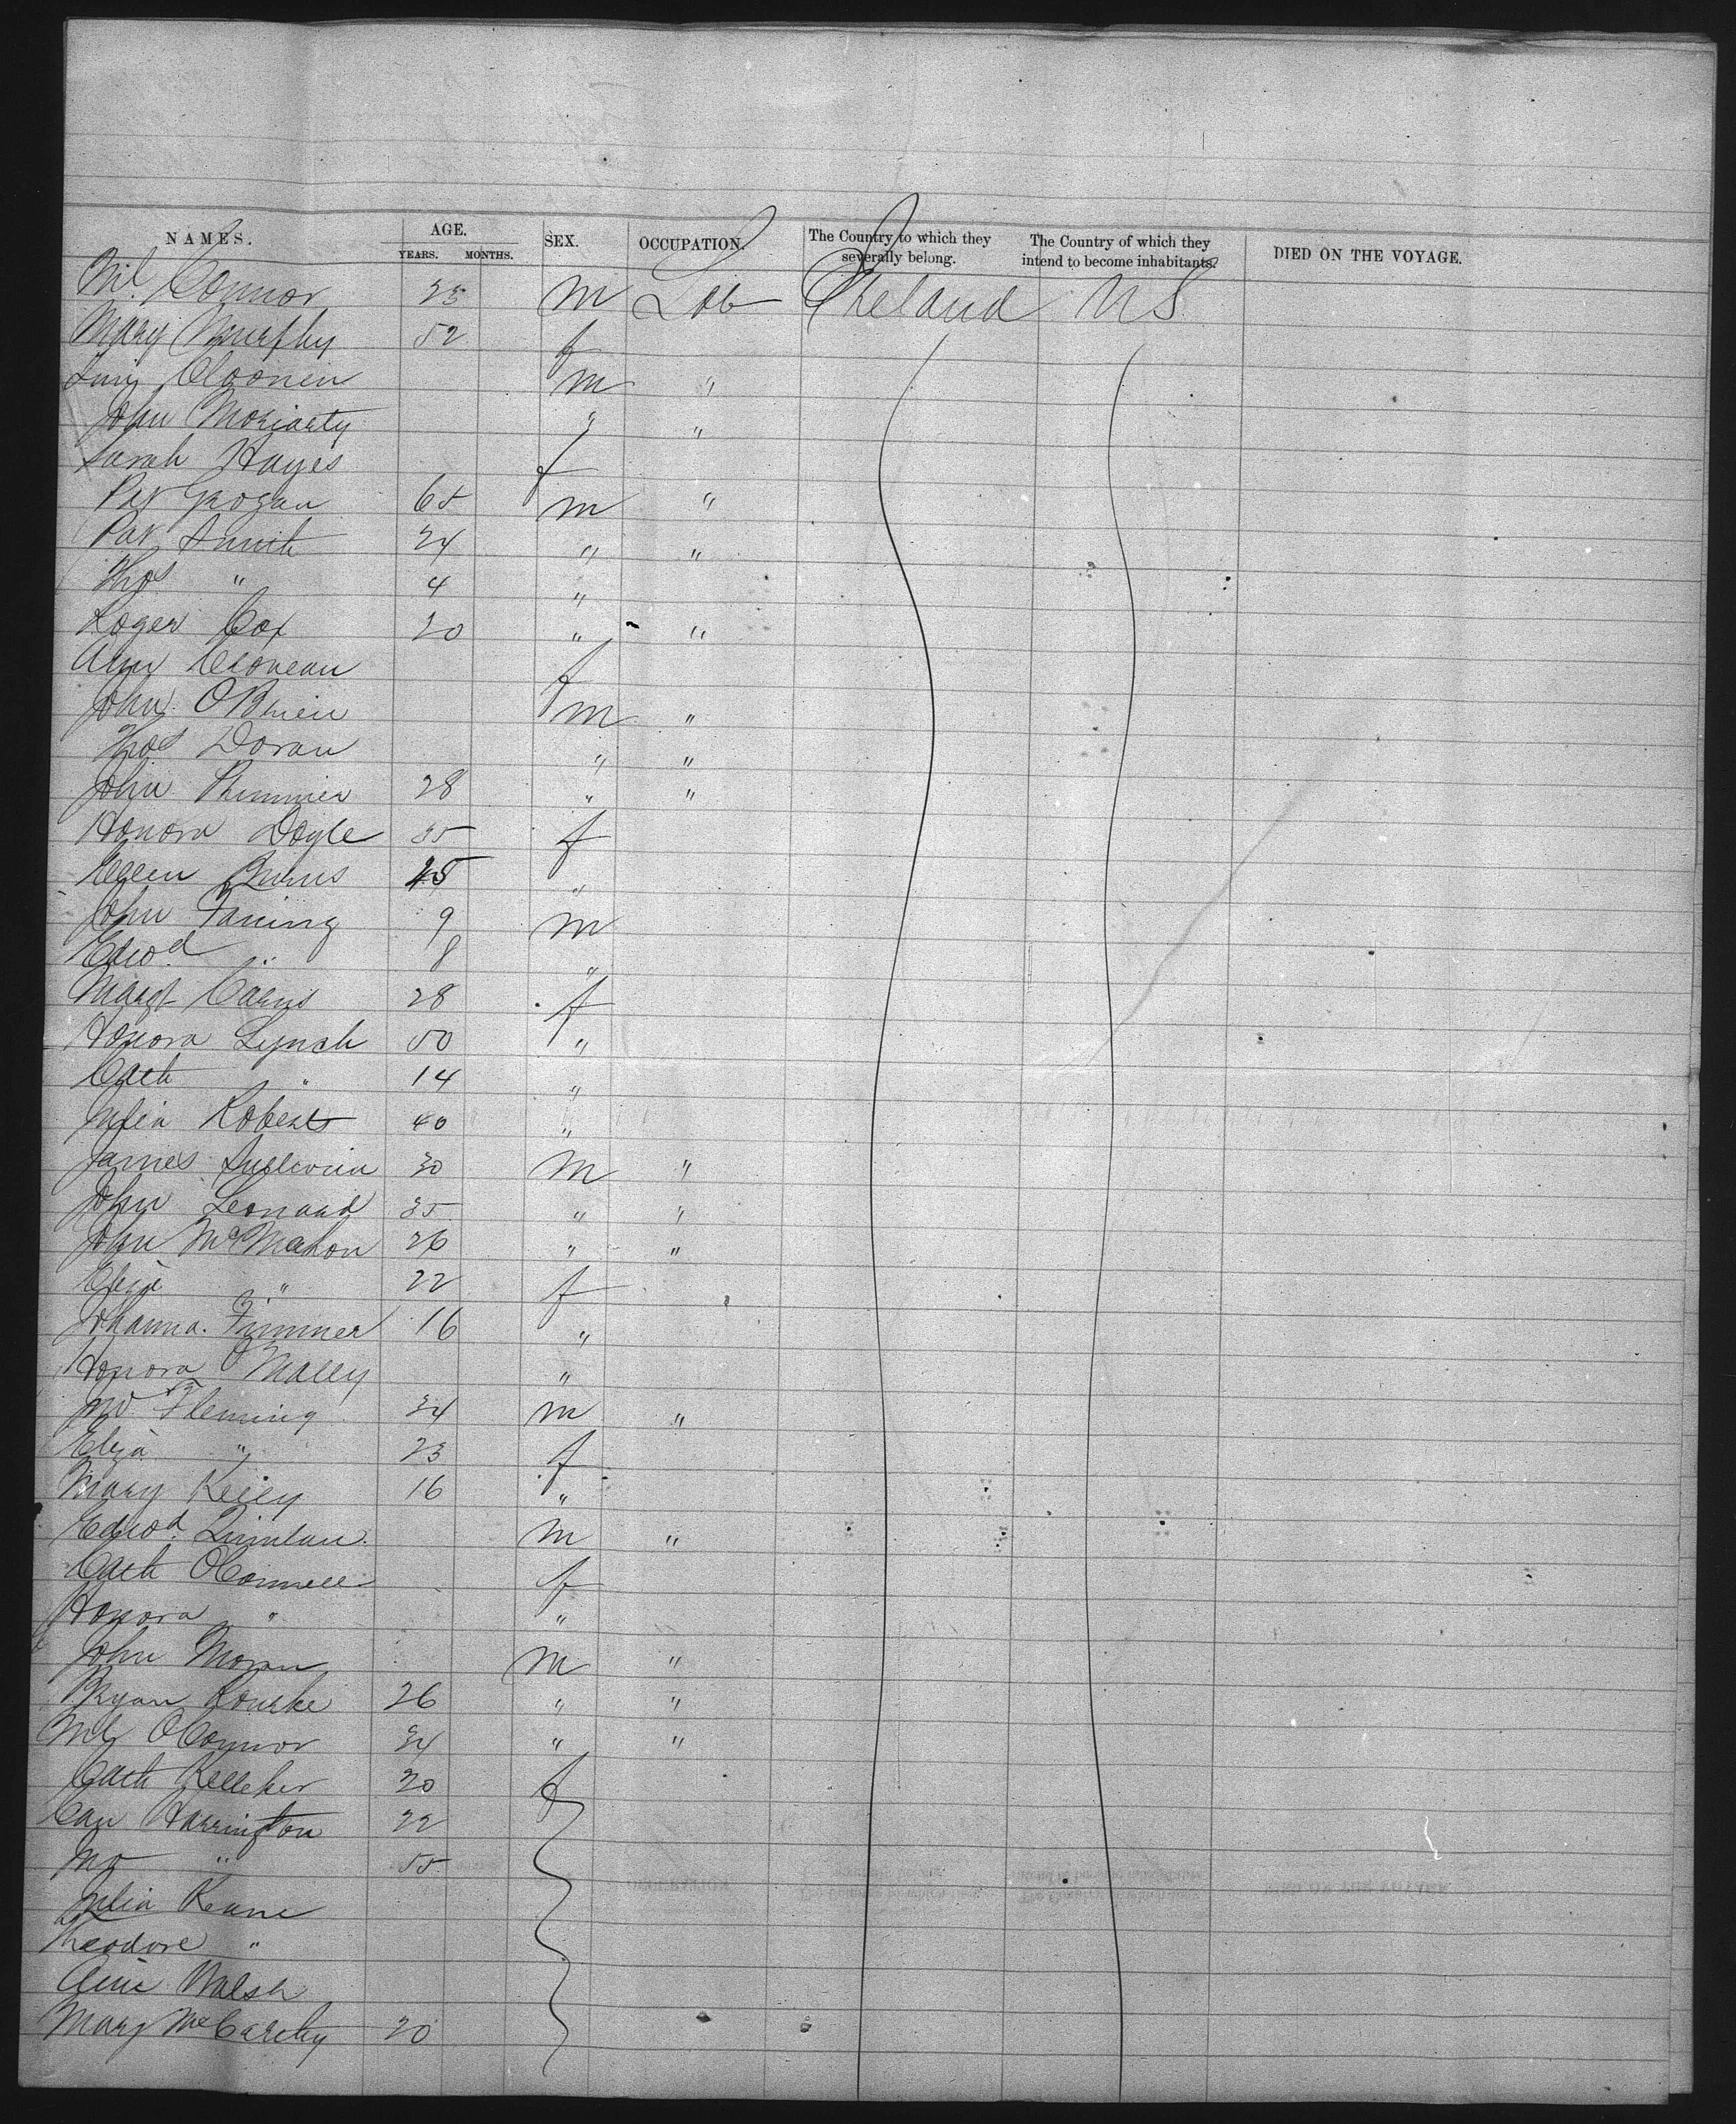 NAMES. AGE. SEX. OCCUPATION. The Country to which they severally belong. The Country of which they intend to become inhabitants. DIED ON THE VOYAGE.
YEARS. MONTHS.
Ml Connor 25 m Lab Ireland US
Mary Murphy 52 f
Cloonen m "
John Moriarty " "
Sarah Hayes f
Pat Grogan 65 m "
Pat Smith 24 " "
Thos " 4 "
Roger Cox 20 " "
Ann f
John OBrien m "
Thos Doran " "
John 28 " "
Honora Doyle 35 f
Ellen Burns 25 "
John Faning 9 m
Edwd " 8 "
Margt Carns 28 f
Honora Lynch 50 "
Cath " 14 "
Julia Roberts 40 "
James Sullivan 30 m "
John Leonard 35 " "
John McMahon 26 " "
Eliza " 22 f
Johanna Fimmer 16 "
Honora OMalley "
Jno Fleming 34 m "
Eliza " 23 f
Mary Kelly 16 "
Edwd Quinlan m "
Cath OConnell f
Honora " "
John Moran m "
Bryan Rourke 26 " "
Ml OConnor 34 " "
Cath Kelleher 20 f
Harrington 22
" 55
Julia Keane
Theodore "
Walsh
Mary McCarthy 20